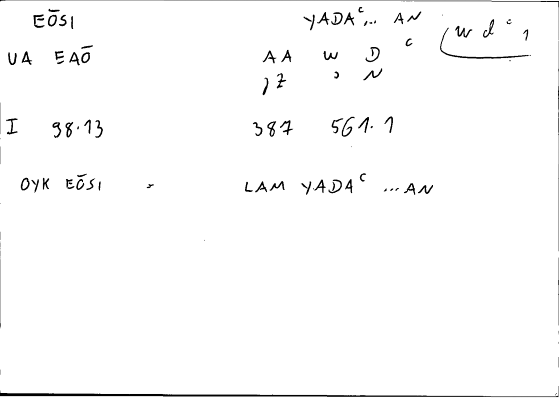 EŌSI YADAᶜ... AN (w d ᶜ 1
UA EAŌ AA W D ᶜ
ȷZ ʾ N
I 98.13 387 561.1
OYK EŌSI LAM YADAᶜ ...AN